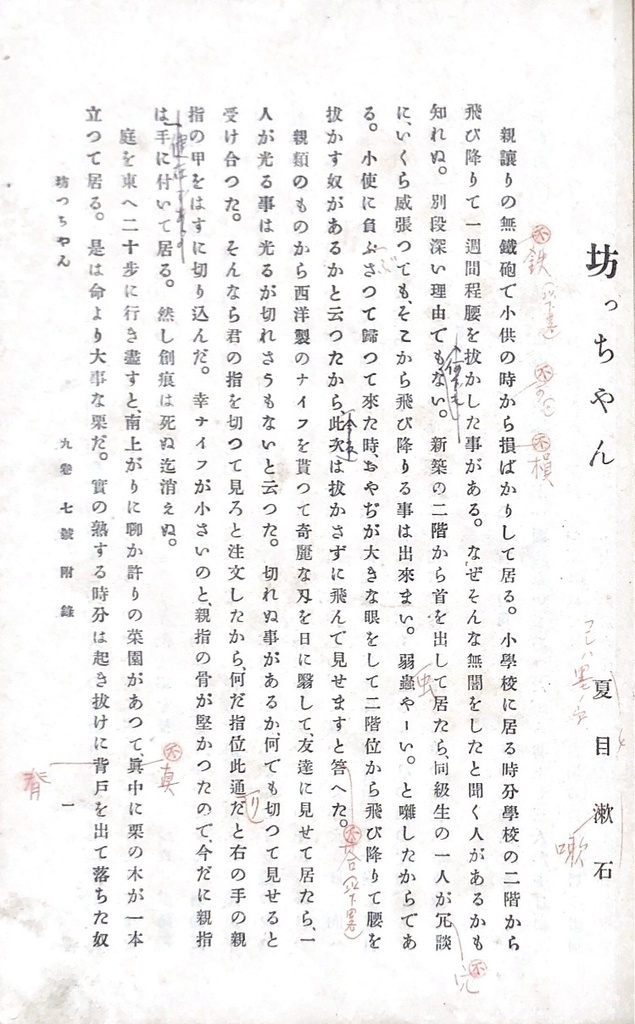 坊っちやん
夏目漱石
親讓りの無鐵砲で小供の時から損ばかりして居る。小學校に居る時分學校の二階から
飛び降りて一週間程腰を拔かした事がある。なぜそんな無闇をしたと聞く人があるかも
知れぬ。別段深い理由でもない。新築の二階から首を出して居たら、同級生の一人が冗談
に、いくら威張つても、そこから飛び降りる事は出來まい。弱蟲やーい。と囃したからであ
る。小使に負ぶさつて歸つて來た時、おやぢが大きな眼をして二階位から飛び降りて腰を
拔かす奴があるかと云つたから、此次は拔かさずに飛んで見せますと答へた。
親類のものから西洋製のナイフを貰つて奇麗な刄を日に翳して、友達に見せて居たら、一
人が光る事は光るが切れさうもないと云つた。切れぬ事があるか、何でも切つて見せると
受け合つた。そんなら君の指を切つて見ろと注文したから、何だ指位此通だと右の手の親
指の甲をはすに切り込んだ。幸ナイフが小さいのと、親指の骨が堅かつたので、今だに親指
は手に付いて居る。然し創痕は死ぬ迄消えぬ。
庭を東へ二十步に行き盡すと、南上がりに聊か許りの菜園があつて、眞中に栗の木が一本
立つて居る。是は命より大事な栗だ。實の熟する時分は起き拔けに背戶を出て落ちた奴
坊つちやん
九卷七號附錄
一
鉄
損
嗽
虫
真